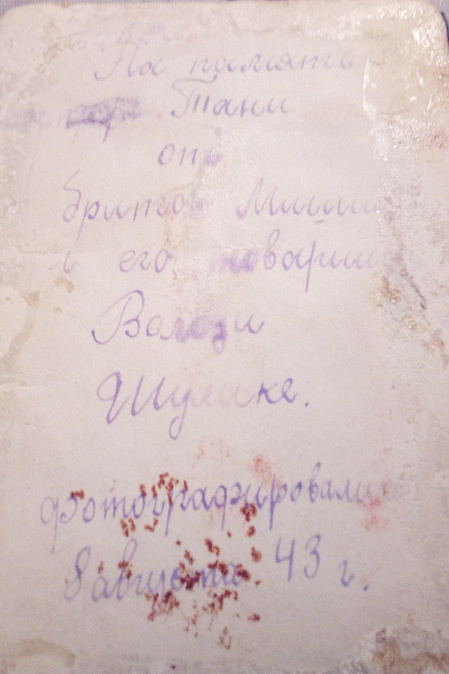 На память
Тани
от
брата Миши
и его товарища
Володи
фотографировались
8 августа 43 г.